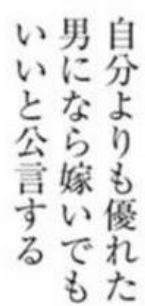 自分よりも優れた
男になら嫁いでも
いいと公言する